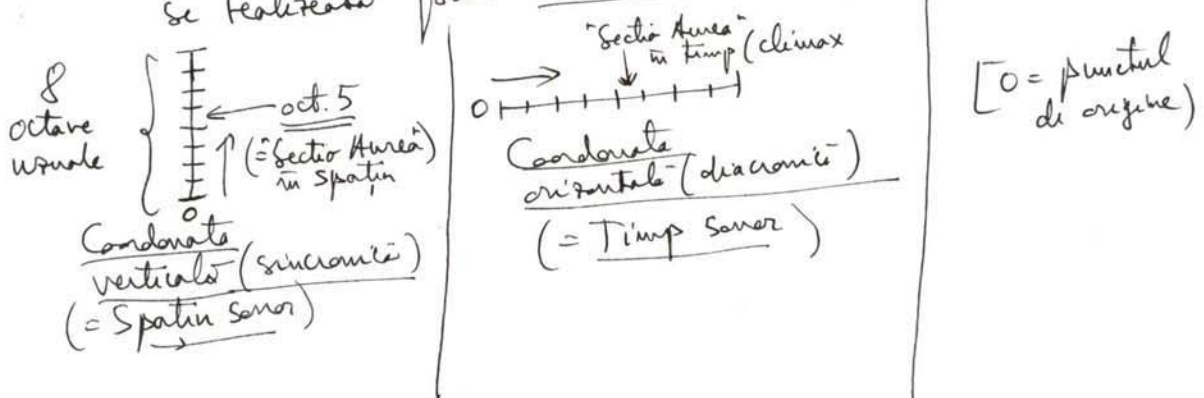 se realizează
8
octave
uzuale
oct. 5
(="Sectio Aurea"
în spațiu
0
Coordonata
verticală (sincronică)
(= Spațiu sonor)
"Sectio Aurea"
în timp (climax
0
Coordonata
orizontală (diacronică)
(= Timp sonor)
[0 = punctul
de origine)